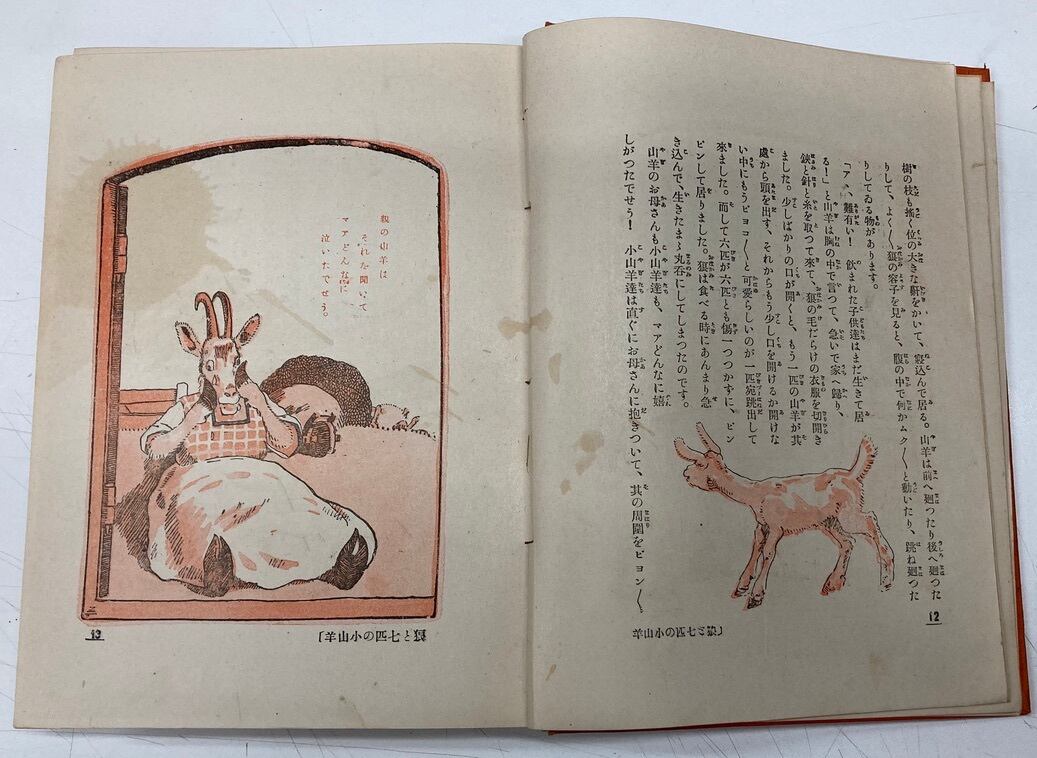 樹の枝も搖ぐ位の大きな鼾をかいて、寢込んで居る。山羊は前へ廻つたり後へ廻つた
りして、よく〳〵狼の容子を見ると、腹の中で何かムク〳〵と動いたり、跳ね廻つた
りしてゐる物があります。
「アヽ、難有い！　飮まれた子供達はまだ生きて居
る！」と山羊は胸の中で言つて、急いで家へ歸り、
鋏と針と糸を取つて來て、狼の毛だらけの衣服を切開き
ました。少しばかりの口が開くと、もう一匹の山羊が其
處から頭を出す、それからもう少し口を開けるか開けな
い中にもうピヨコ〳〵と可愛らしいのが一匹宛跳出して
來ました。而して六匹が六匹とも傷一つつかずに、ピン
ピンして居りました。狼は食べる時にあんまり急
き込んで、生きたまヽ丸呑にしてしまつたのです。
山羊のお母さんも小山羊達も、マアどんなに嬉
しがつたでせう！　小山羊達は直ぐにお母さんに抱きついて、其の周圍をピヨン〳〵
12
狼と七匹の小山羊〕
親の山羊は
それを聞いて
マアどんなに
泣いたでせう。
13
〔狼と七匹の小山羊